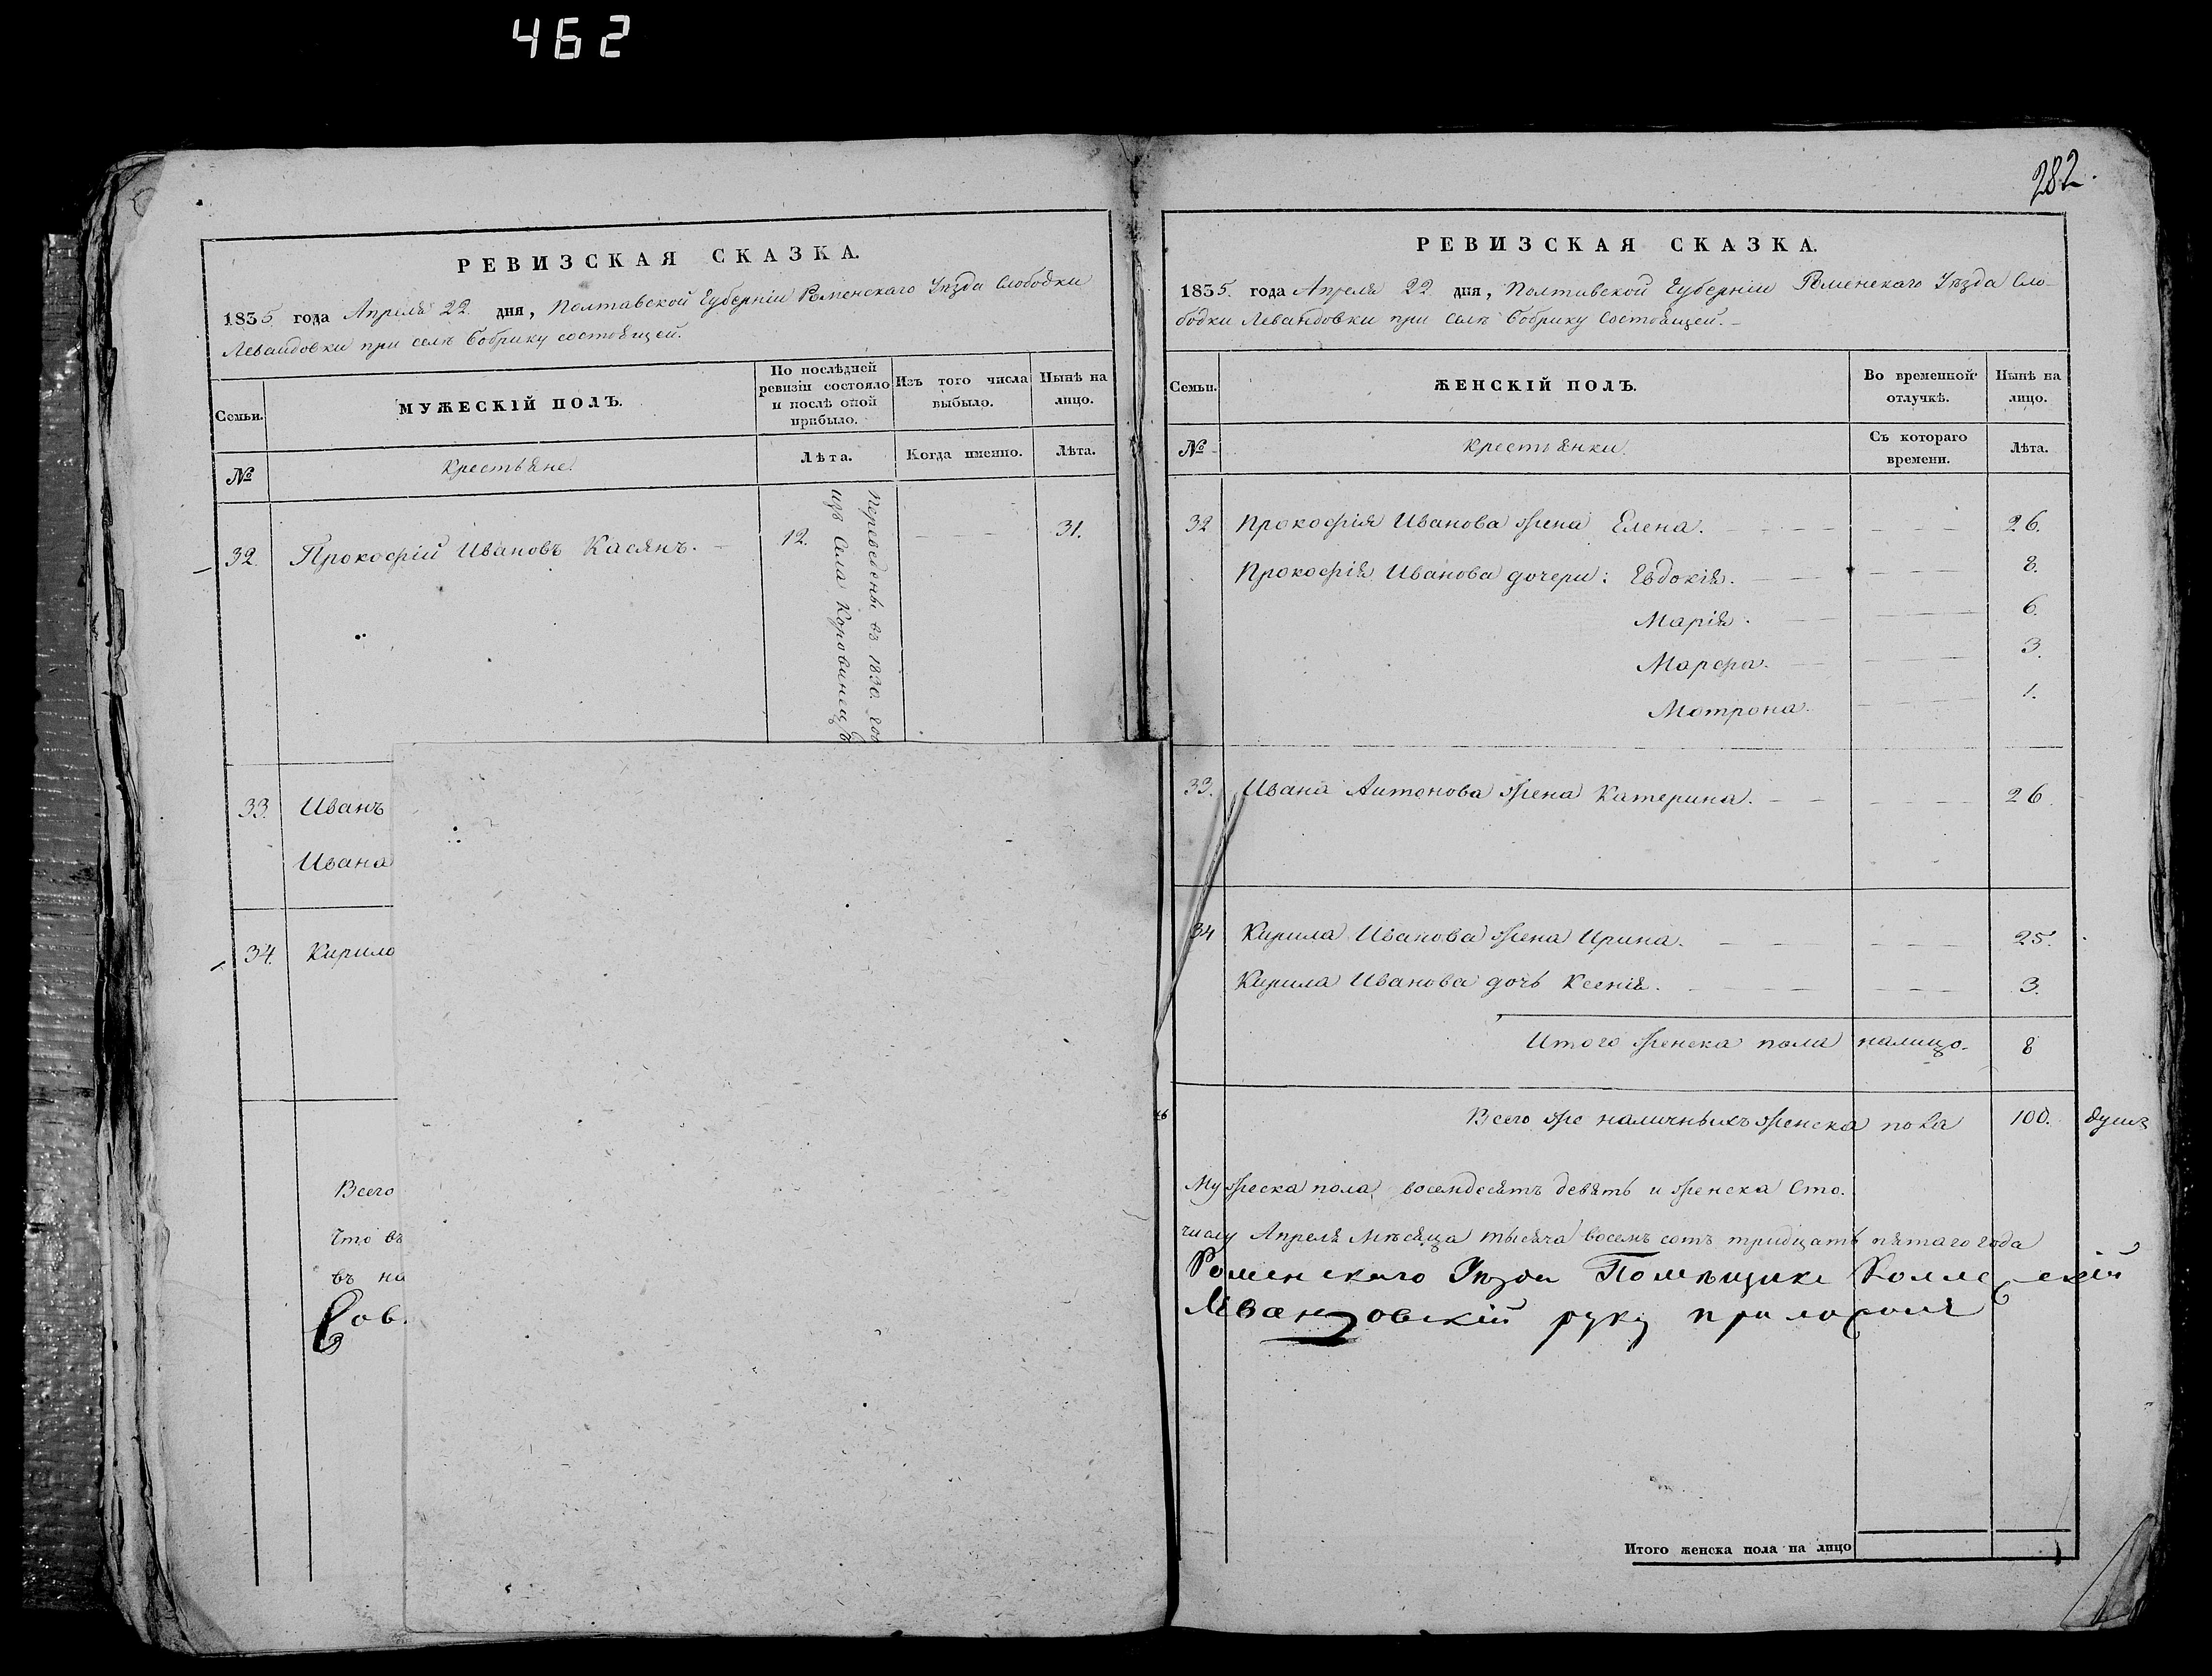 462
282.
РЕВИЗСКАЯ СКАЗКА.
1835 года Апреля 22 дня, Полтавской Губерніи Роменскаго Уѣзда Слободки
Левандовки при селѣ Бобрику состоящей.
Семьи.
МУЖЕСКІЙ ПОЛЪ.
По послѣдней ревизіи состояло и послѣ оной прибыло.
Изъ того числа выбыло.
Нынѣ на лицо.
№
Крестьяне.
Лѣта.
Когда именно.
Лѣта.
32. Прокофій Ивановъ Касянъ. 12. 31.
Переведены въ 1830. год
изъ Села Коровинец
33. Иванъ
Ивана
34. Кирило
Всего
Что въ
въ на
Сов
РЕВИЗСКАЯ СКАЗКА.
1835. года Апреля 22 дня, Полтавской Губерніи Роменскаго Уѣзда Сло-
бодки Левандовки при селѣ Бобрику состоящей.
Семьи.
ЖЕНСКІЙ ПОЛЪ.
Во временной отлучкѣ.
Нынѣ на лицо.
№
Крестьянки.
Съ котораго времени.
Лѣта.
32 Прокофія Иванова жена Елена. 26.
Прокофія Иванова дочери: Евдокія. 8.
Марія. 6.
Марфа. 3.
Мотрона. 1.
33. Ивана Антонова жена Катерина. 26.
34 Кирила Иванова жена Ирина. 25.
Кирила Иванова дочь Ксенія. 3.
Итого женска пола налицо. 8
Всего же наличныхъ женска пола 100. душъ
Мужеска пола восемдесятъ девять и женска Сто.
числу Апреля Мѣсяца тысяча восемь сотъ тридцать пятаго года
Роменскаго Уѣзда Помѣщикъ Коллежскій
Левандовскій руку приложилъ
Итого женска пола на лицо